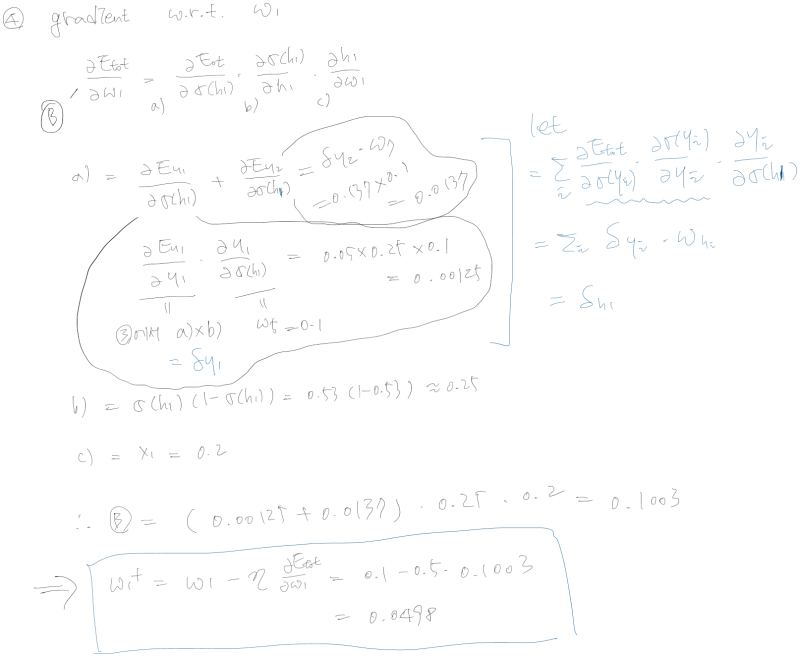 ④ gradient w.r.t. w₁
∂Etot/∂w₁ = ∂Etot/∂σ(h₁) · ∂σ(h₁)/∂h₁ · ∂h₁/∂w₁
Ⓑ a) b) c)
a) = ∂Ey₁/∂σ(h₁) + ∂Ey₂/∂σ(h₁) = δy₂ · w₇
= 0.137 × 0.1
= 0.0137
∂Ey₁/∂y₁ · ∂y₁/∂σ(h₁) = 0.05 × 0.25 × 0.1
= 0.00125
③에서 a)×b) w₅ = 0.1
= δy₁
let
= Σᵢ ∂Etot/∂σ(yᵢ) · ∂σ(yᵢ)/∂yᵢ · ∂yᵢ/∂σ(h₁)
= Σᵢ δyᵢ · whᵢ
= δh₁
b) = σ(h₁) (1-σ(h₁)) = 0.53 (1-0.53) ≈ 0.25
c) = x₁ = 0.2
∴ Ⓑ = (0.00125 + 0.0137) · 0.25 · 0.2 = 0.1003
⇒ w₁⁺ = w₁ - η ∂Etot/∂w₁ = 0.1 - 0.5 · 0.1003
= 0.0498